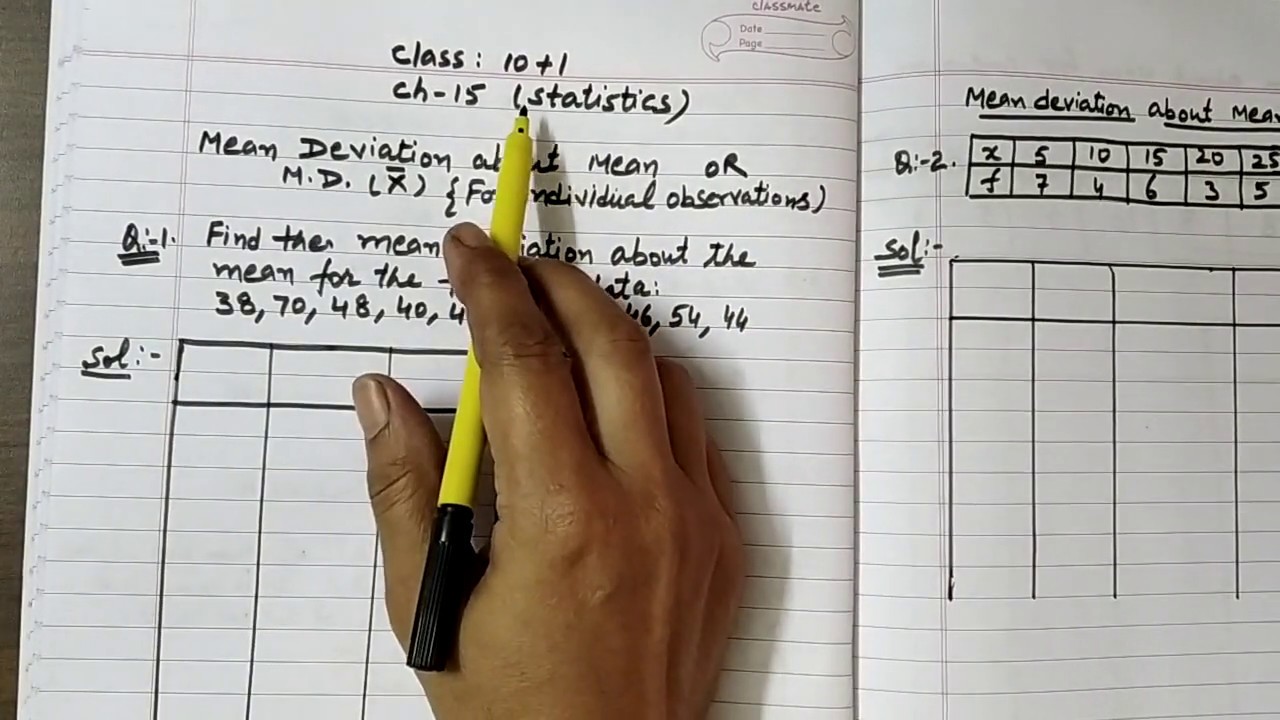 classmate
Date
Page
Class: 10+1
Ch-15 (Statistics)
Mean Deviation Mean OR
M.D. (X̄) { individual observations)
Q:-1. Find the mean about the
mean for the
38, 70, 48, 40, 54, 44
Sol:-
Mean deviation about
Q:-2. x 5 10 15 20 25
f 7 4 6 3 5
Sol:-